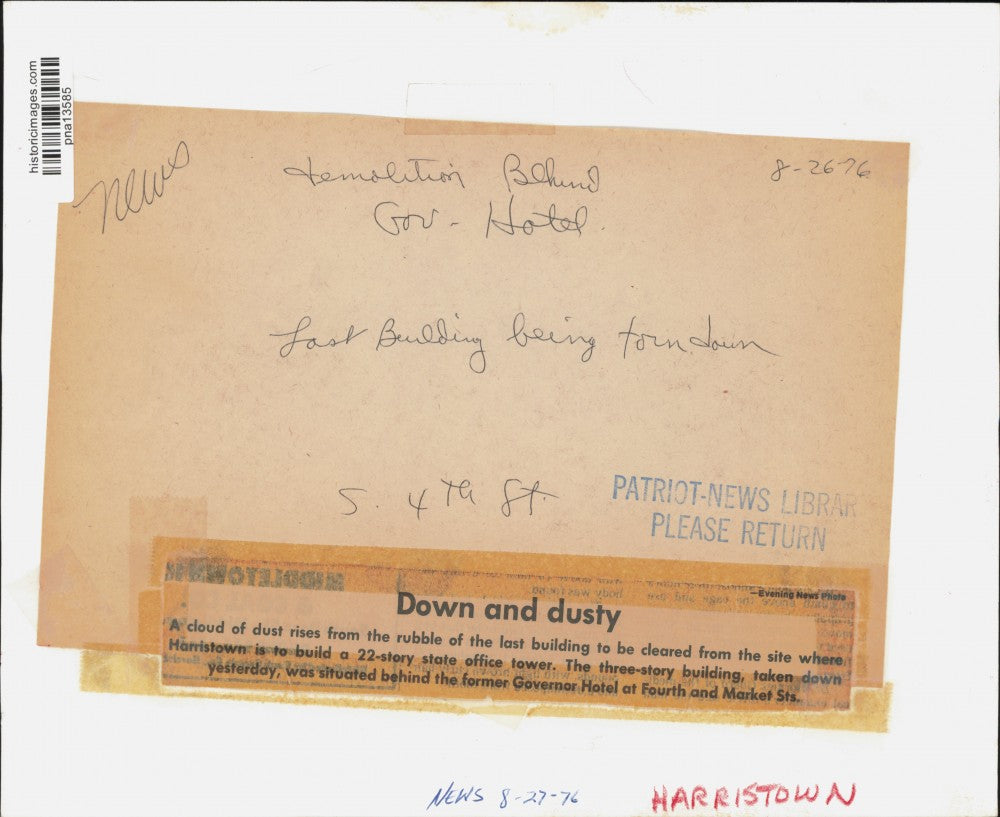 historicimages.com
pna13585
News
Demolition Behind
Gov- Hotel.
8-26-76
Last Building being torn down
S. 4th St.
PATRIOT-NEWS LIBRAR
PLEASE RETURN
MIDDLETOWN
body was found
—Evening News Photo
Down and dusty
A cloud of dust rises from the rubble of the last building to be cleared from the site where
Harristown is to build a 22-story state office tower. The three-story building, taken down
yesterday, was situated behind the former Governor Hotel at Fourth and Market Sts.
NEWS 8-27-76
HARRISTOWN